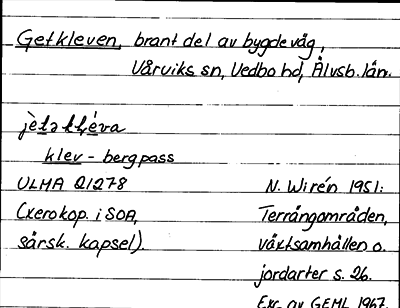 Getkleven, brant del av bygdeväg,
Vårviks sn, Vedbo hd, Älvsb. län.
jètəkḷéva
klev - bergpass
ULMA 21278
(xerokop. i SOA,
särsk. kapsel).
N. Wirén 1951:
Terrängområden,
växtsamhällen o.
jordarter s. 26.
Exc. av GEML 1967.